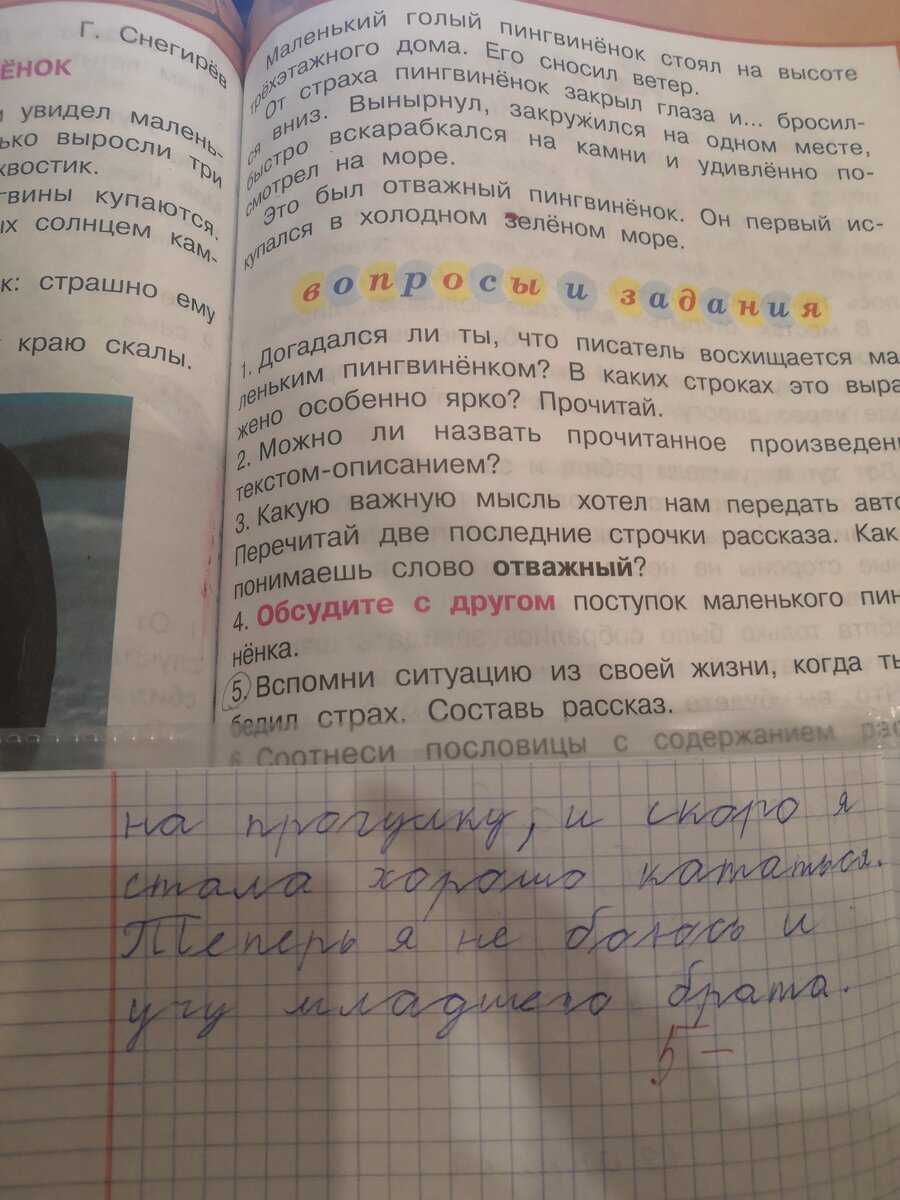 Г. Снегирёв
ЁНОК
увидел малень-
ько выросли три
хвостик.
гвины купаются.
ых солнцем кам-
к: страшно ему
краю скалы.
Маленький голый пингвинёнок стоял на высоте
трёхэтажного дома. Его сносил ветер.
От страха пингвинёнок закрыл глаза и... бросил-
ся вниз. Вынырнул, закружился на одном месте,
быстро вскарабкался на камни и удивлённо по-
смотрел на море.
Это был отважный пингвинёнок. Он первый ис-
купался в холодном зелёном море.
вопросы и задания
1. Догадался ли ты, что писатель восхищается ма
леньким пингвинёнком? В каких строках это выра
жено особенно ярко? Прочитай.
2. Можно ли назвать прочитанное произведен
текстом-описанием?
3. Какую важную мысль хотел нам передать авто
Перечитай две последние строчки рассказа. Как
понимаешь слово отважный?
4. Обсудите с другом поступок маленького пин
нёнка.
5. Вспомни ситуацию из своей жизни, когда ты
бедил страх. Составь рассказ.
6. Соотнеси пословицы с содержанием рас
на прогулку, и скоро я
стала хорошо кататься.
Теперь я не боюсь и
учу младшего брата.
5 –